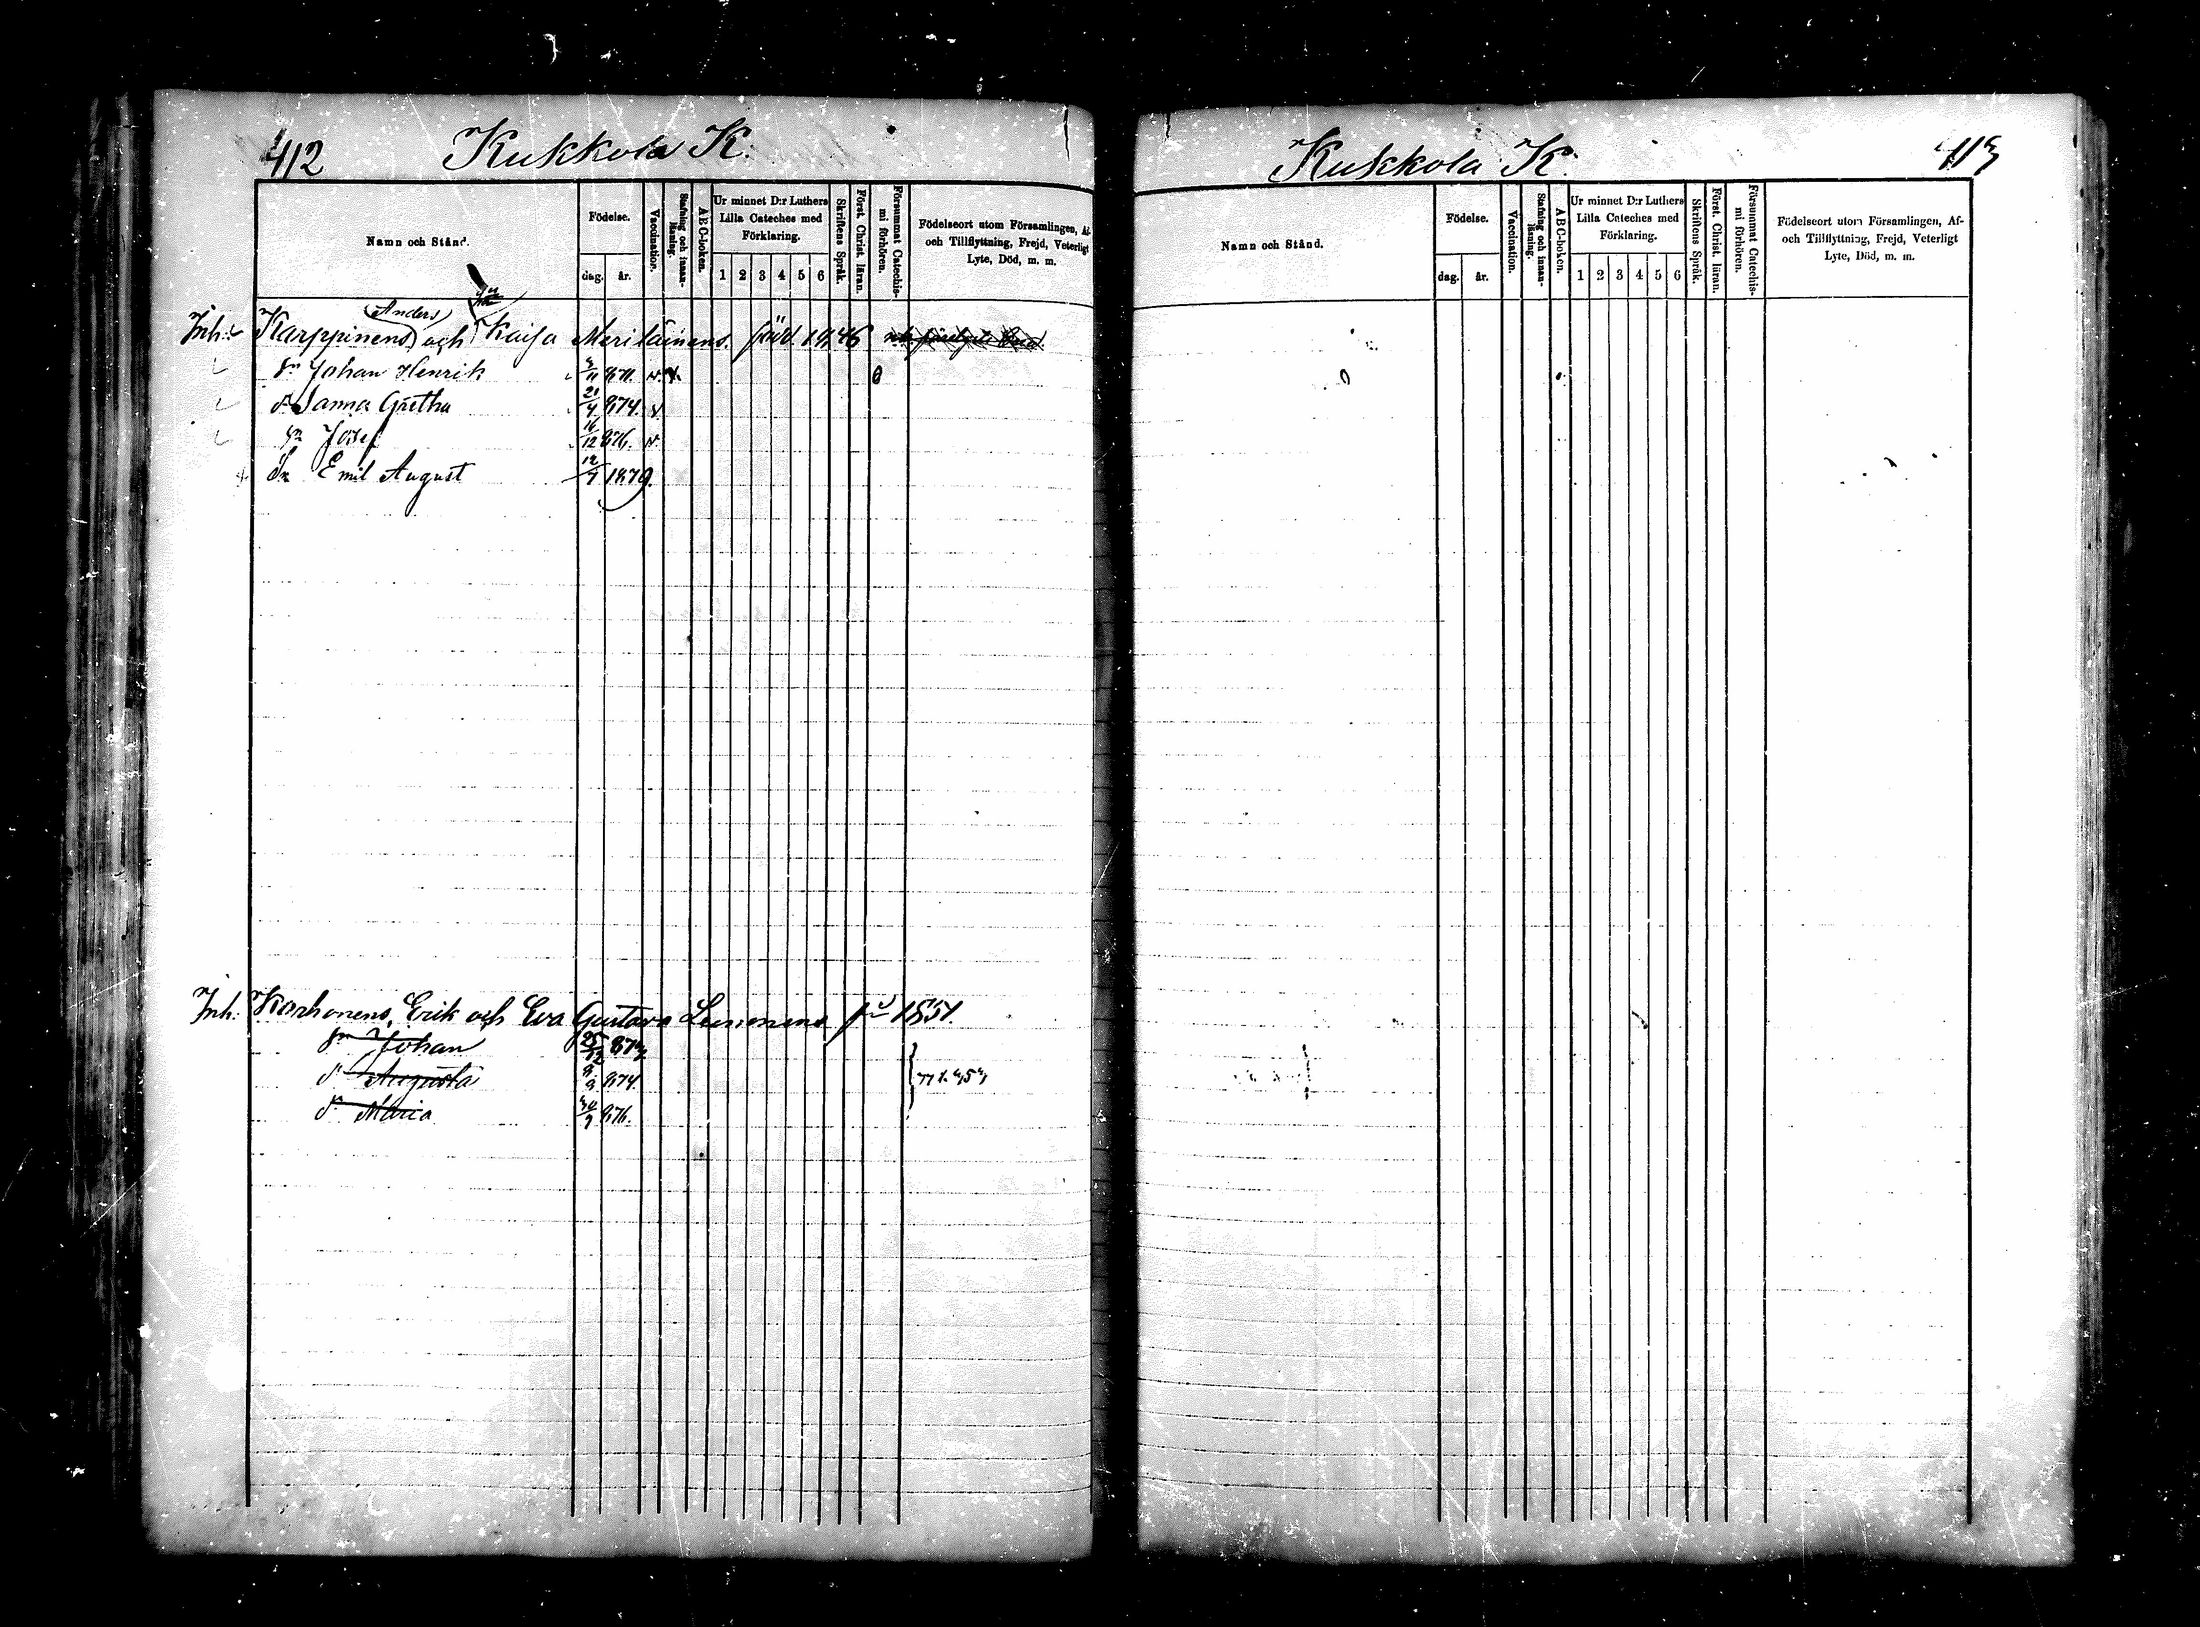 412 Kukkola K.
Namn och Stånd.
Födelse.
dag. år.
Vaccination.
Stafning och innan-läsning.
A B C-boken.
Ur minnet D:r Luthers
Lilla Cateches med
Förklaring.
1 2 3 4 5 6
Skriftens Språk.
Först. Christ. läran.
Försummat Catechis-
mi förhören.
Födelseort utom Församlingen, Af-
och Tillflyttning, Frejd, Veterligt
Lyte, Död, m. m.
Anders
Inh: Karppinens och Kaisa Meriläinens. född 1846
Sn Johan Henrik 3/11 871. v. x
dr Anna Gretha 21/4 874. v.
Sn Josef 16/12 876. v.
Sn Emil August 12/7 1879.
Inh: Korhonens, Erik och Eva Gustava Leinonens fd 1851.
Sn Johan 25/12 873
dr Augusta 9/9 874
dr Maria 30/9 876.
Kukkola K. 413
Namn och Stånd.
Födelse.
dag. år.
Vaccination.
Stafning och innan-läsning.
A B C-boken.
Ur minnet D:r Luthers
Lilla Cateches med
Förklaring.
1 2 3 4 5 6
Skriftens Språk.
Först. Christ. läran.
Försummat Catechis-
mi förhören.
Födelseort utom Församlingen, Af-
och Tillflyttning, Frejd, Veterligt
Lyte, Död, m. m.